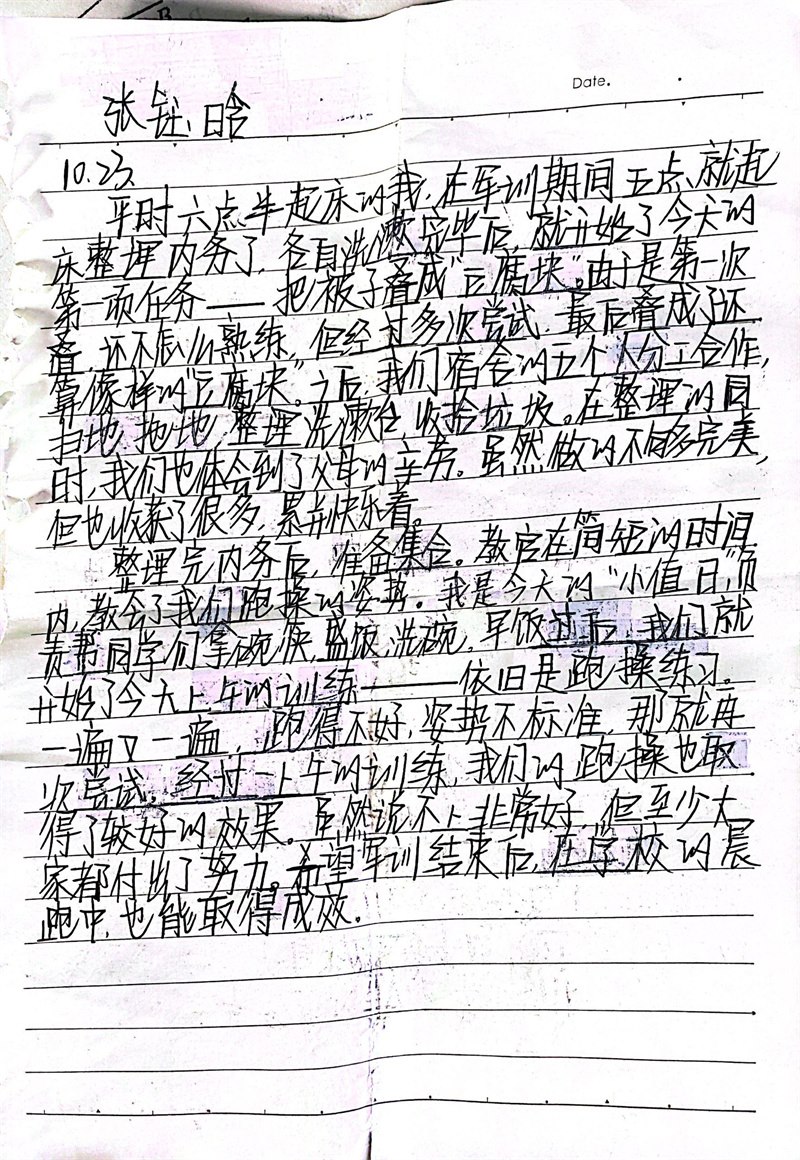 Date.
张钰晗
10.23.
平时六点半起床的我,在军训期间五点就起
床整理内务了,各自洗漱完毕后,就开始了今天的
第一项任务——把被子叠成"豆腐块"。由于是第一次
叠,还不怎么熟练,但经过多次尝试,最后叠成了还
算像样的"豆腐块"。之后,我们宿舍的五个人分工合作,
扫地、拖地、整理洗漱台、收拾垃圾。在整理的同
时,我们也体会到了父母的辛劳。虽然做的不够多完美,
但也收获了很多,累并快乐着。
整理完内务后,准备集合。教官在简短的时间
内,教会了我们跑操的姿势。我是今天的"小值日",负
责帮同学们拿碗筷,盛饭,洗碗,早饭过后,我们就
开始了今天上午的训练——依旧是跑操练习。
一遍又一遍,跑得不好,姿势不标准,那就再
次尝试。经过一上午的训练,我们的跑操也取
得了较好的效果。虽然说不上非常好,但至少大
家都付出了努力。希望军训结束后,在学校的晨
跑中,也能取得成效。